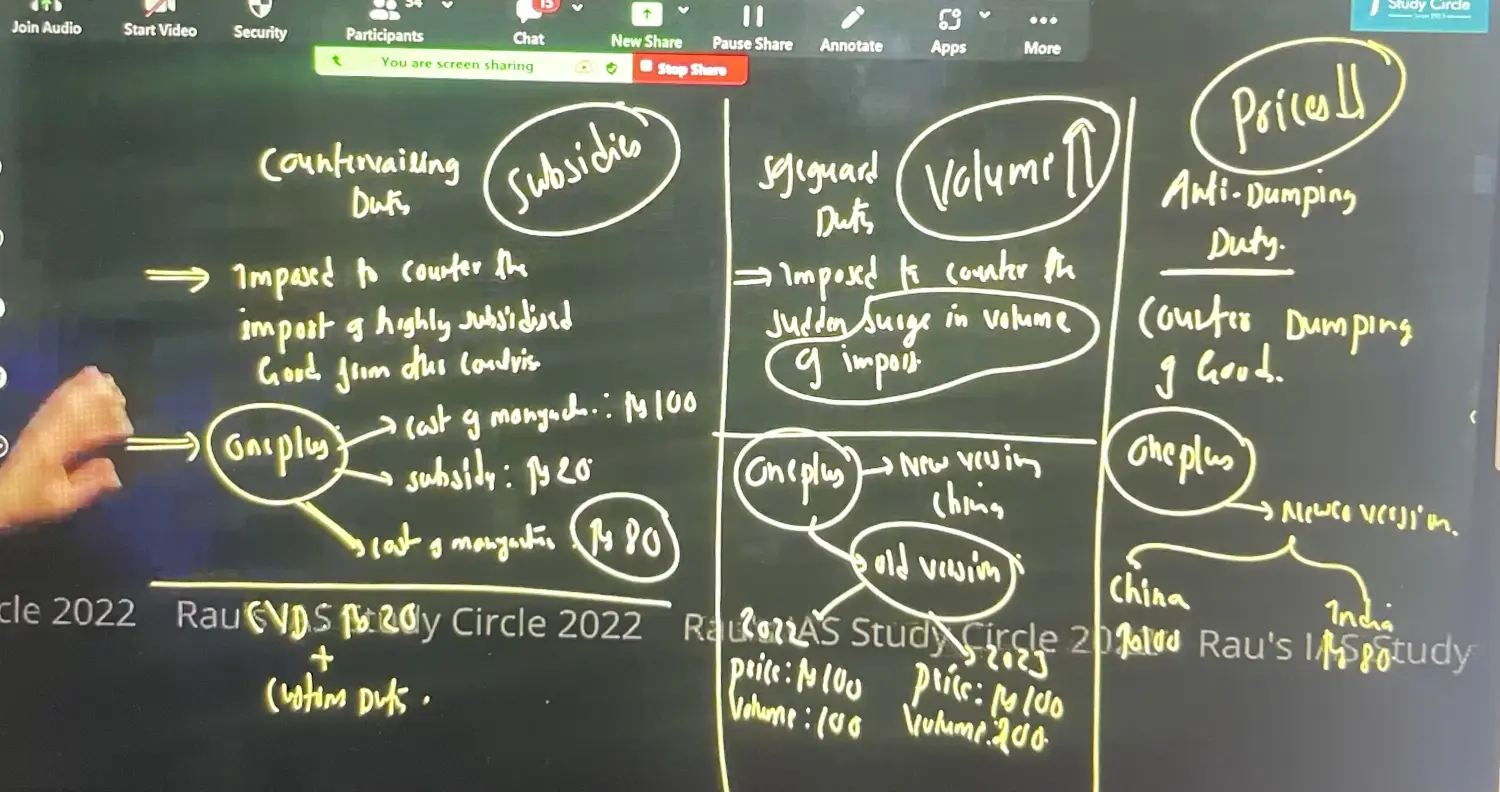 Join Audio
Start Video
Security
34
Participants
15
Chat
New Share
Pause Share
Annotate
Apps
More
Study Circle
You are screen sharing
Stop Share
Countervailing
Duty
Subsidies
⇒ Imposed to counter the
import of highly subsidised
Good from other Countries
Oneplus
→ cost of manufactu.: ₨ 100
→ subsidy: ₨ 20
→ cost of manufacturing : ₨ 80
CVD ₨ 20
+
Customs Duty.
Safeguard
Duty
Volume ⇑
⇒ Imposed to counter the
sudden surge in volume
of import.
Oneplus → New version
China
old version
2022
price: ₨ 100
Volume: 100
2023
price: ₨ 100
Volume: 200
Prices ↓↓
Anti-Dumping
Duty.
Counter Dumping
of Good.
Oneplus
→ Newer version.
China
₨ 100
India
₨ 80
cle 2022 Rau's IAS Study Circle 2022 Rau's IAS Study Circle 2022 Rau's IAS Study